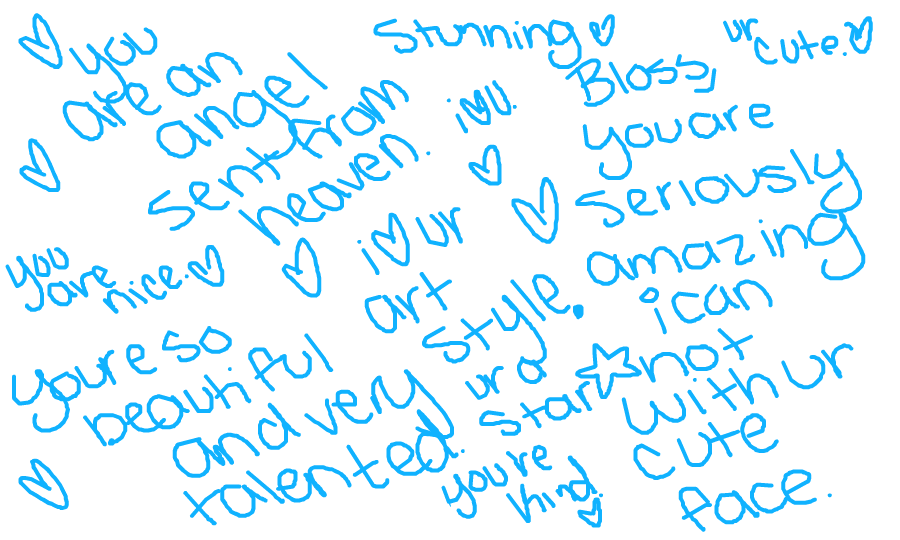 ♡ you
are an
angel
sent from
heaven.
Stunning ♡
ur
cute. ♡
i ♡ U.
Bloss,
you are
seriously
amazing
i can
not
with ur
cute
face.
you
are
nice. ♡
i ♡ ur
art
style.
youre so
beautiful
and very
talented.
ur a
star ☆
you're
kind. ♡